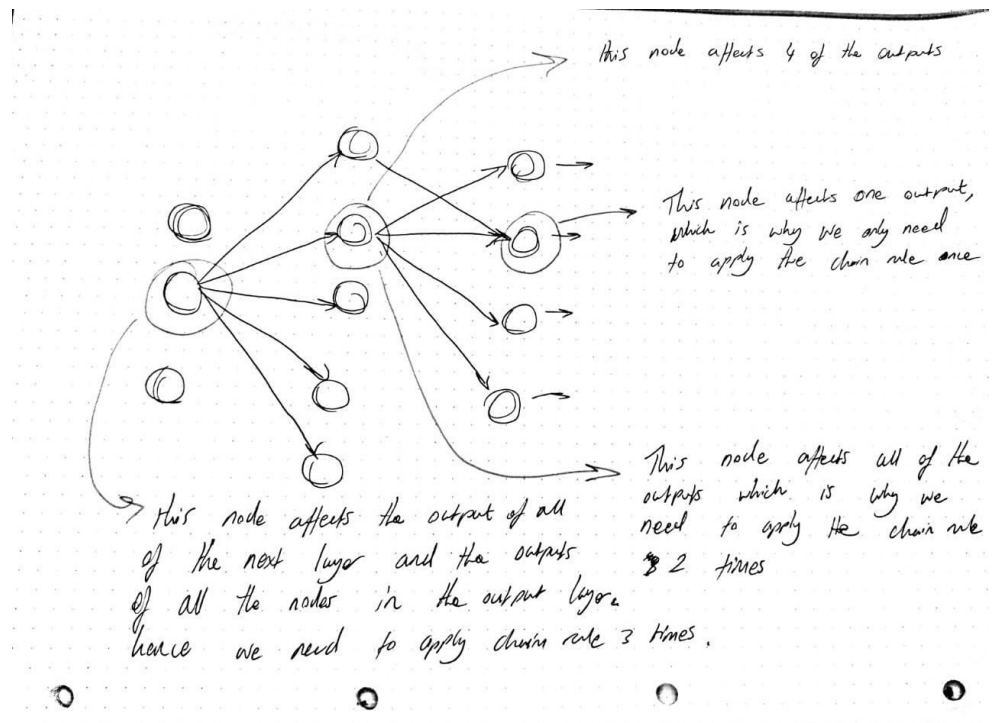 this node affects 4 of the outputs
This node affects one output,
which is why we only need
to apply the chain rule once
This node affects all of the
outputs which is why we
need to apply the chain rule
2 times
this node affects the output of all
of the next layer and the outputs
of all the nodes in the output layer.
hence we need to apply chain rule 3 times.